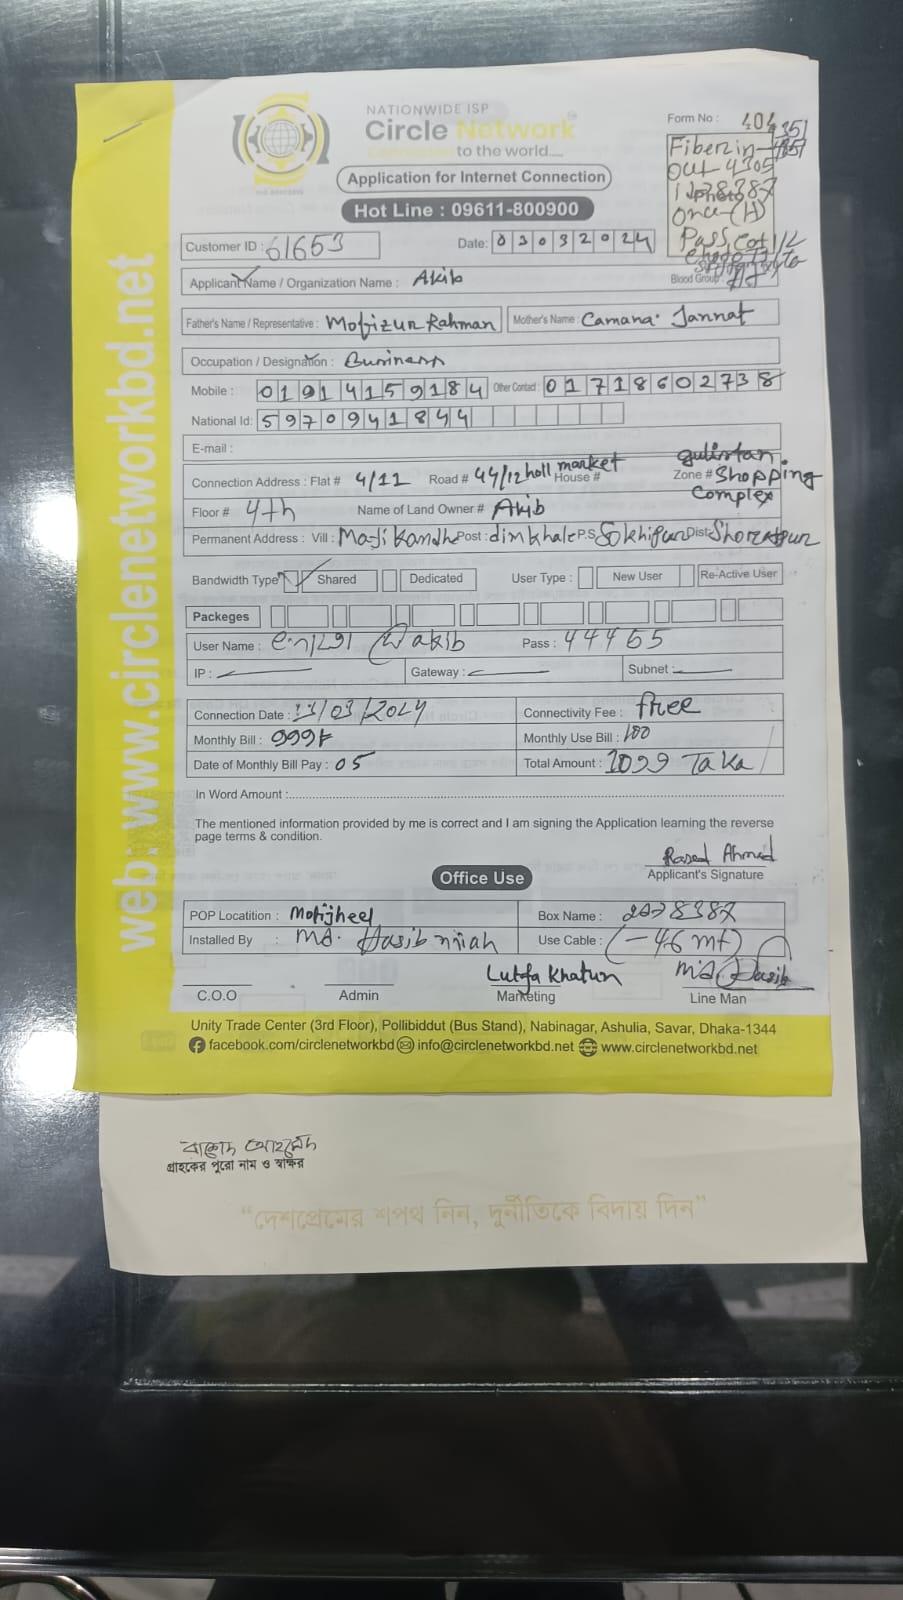 NATIONWIDE ISP
Circle Network
Connected to the world....
Application for Internet Connection
Hot Line : 09611-800900
Form No : 404
Fiber in
out 4305
Photo
once-(H)
Customer ID : 61653
Date: 03032024
Applicant Name / Organization Name : Akib
Blood Group :
Father's Name / Representative : Mofizur Rahman Mother's Name : Camana. Jannat
Occupation / Designation : Business
Mobile : 01914159184 Other Contact : 01718602738
National Id: 5970941844
E-mail :
Connection Address : Flat # 4/11 Road # 44/12 holl market House # Zone # gulistan. Shopping Complex
Floor # 4th Name of Land Owner # Akib
Permanent Address : Vill : Post : dimkhale P.S Dist:
Bandwidth Type Shared Dedicated User Type : New User Re-Active User
Packeges
User Name : akib Pass : 44465
IP : Gateway : Subnet :
Connection Date : 13/03/2024 Connectivity Fee : free
Monthly Bill : 999 Monthly Use Bill : 100
Date of Monthly Bill Pay : 05 Total Amount : 1099 Taka
In Word Amount :
The mentioned information provided by me is correct and I am signing the Application learning the reverse
page terms & condition.
Rased Ahmed
Applicant's Signature
Office Use
POP Locatition : Motijheel Box Name :
Installed By : MD. Hasib miah Use Cable : (-46 mt)
Lutfa Khatun MD. Hasib
C.O.O Admin Marketing Line Man
Unity Trade Center (3rd Floor), Pollibiddut (Bus Stand), Nabinagar, Ashulia, Savar, Dhaka-1344
facebook.com/circlenetworkbd info@circlenetworkbd.net www.circlenetworkbd.net
web: www.circlenetworkbd.net
রাশেদ আহমেদ
গ্রাহকের পুরো নাম ও স্বাক্ষর
"দেশপ্রেমের শপথ নিন, দুর্নীতিকে বিদায় দিন"